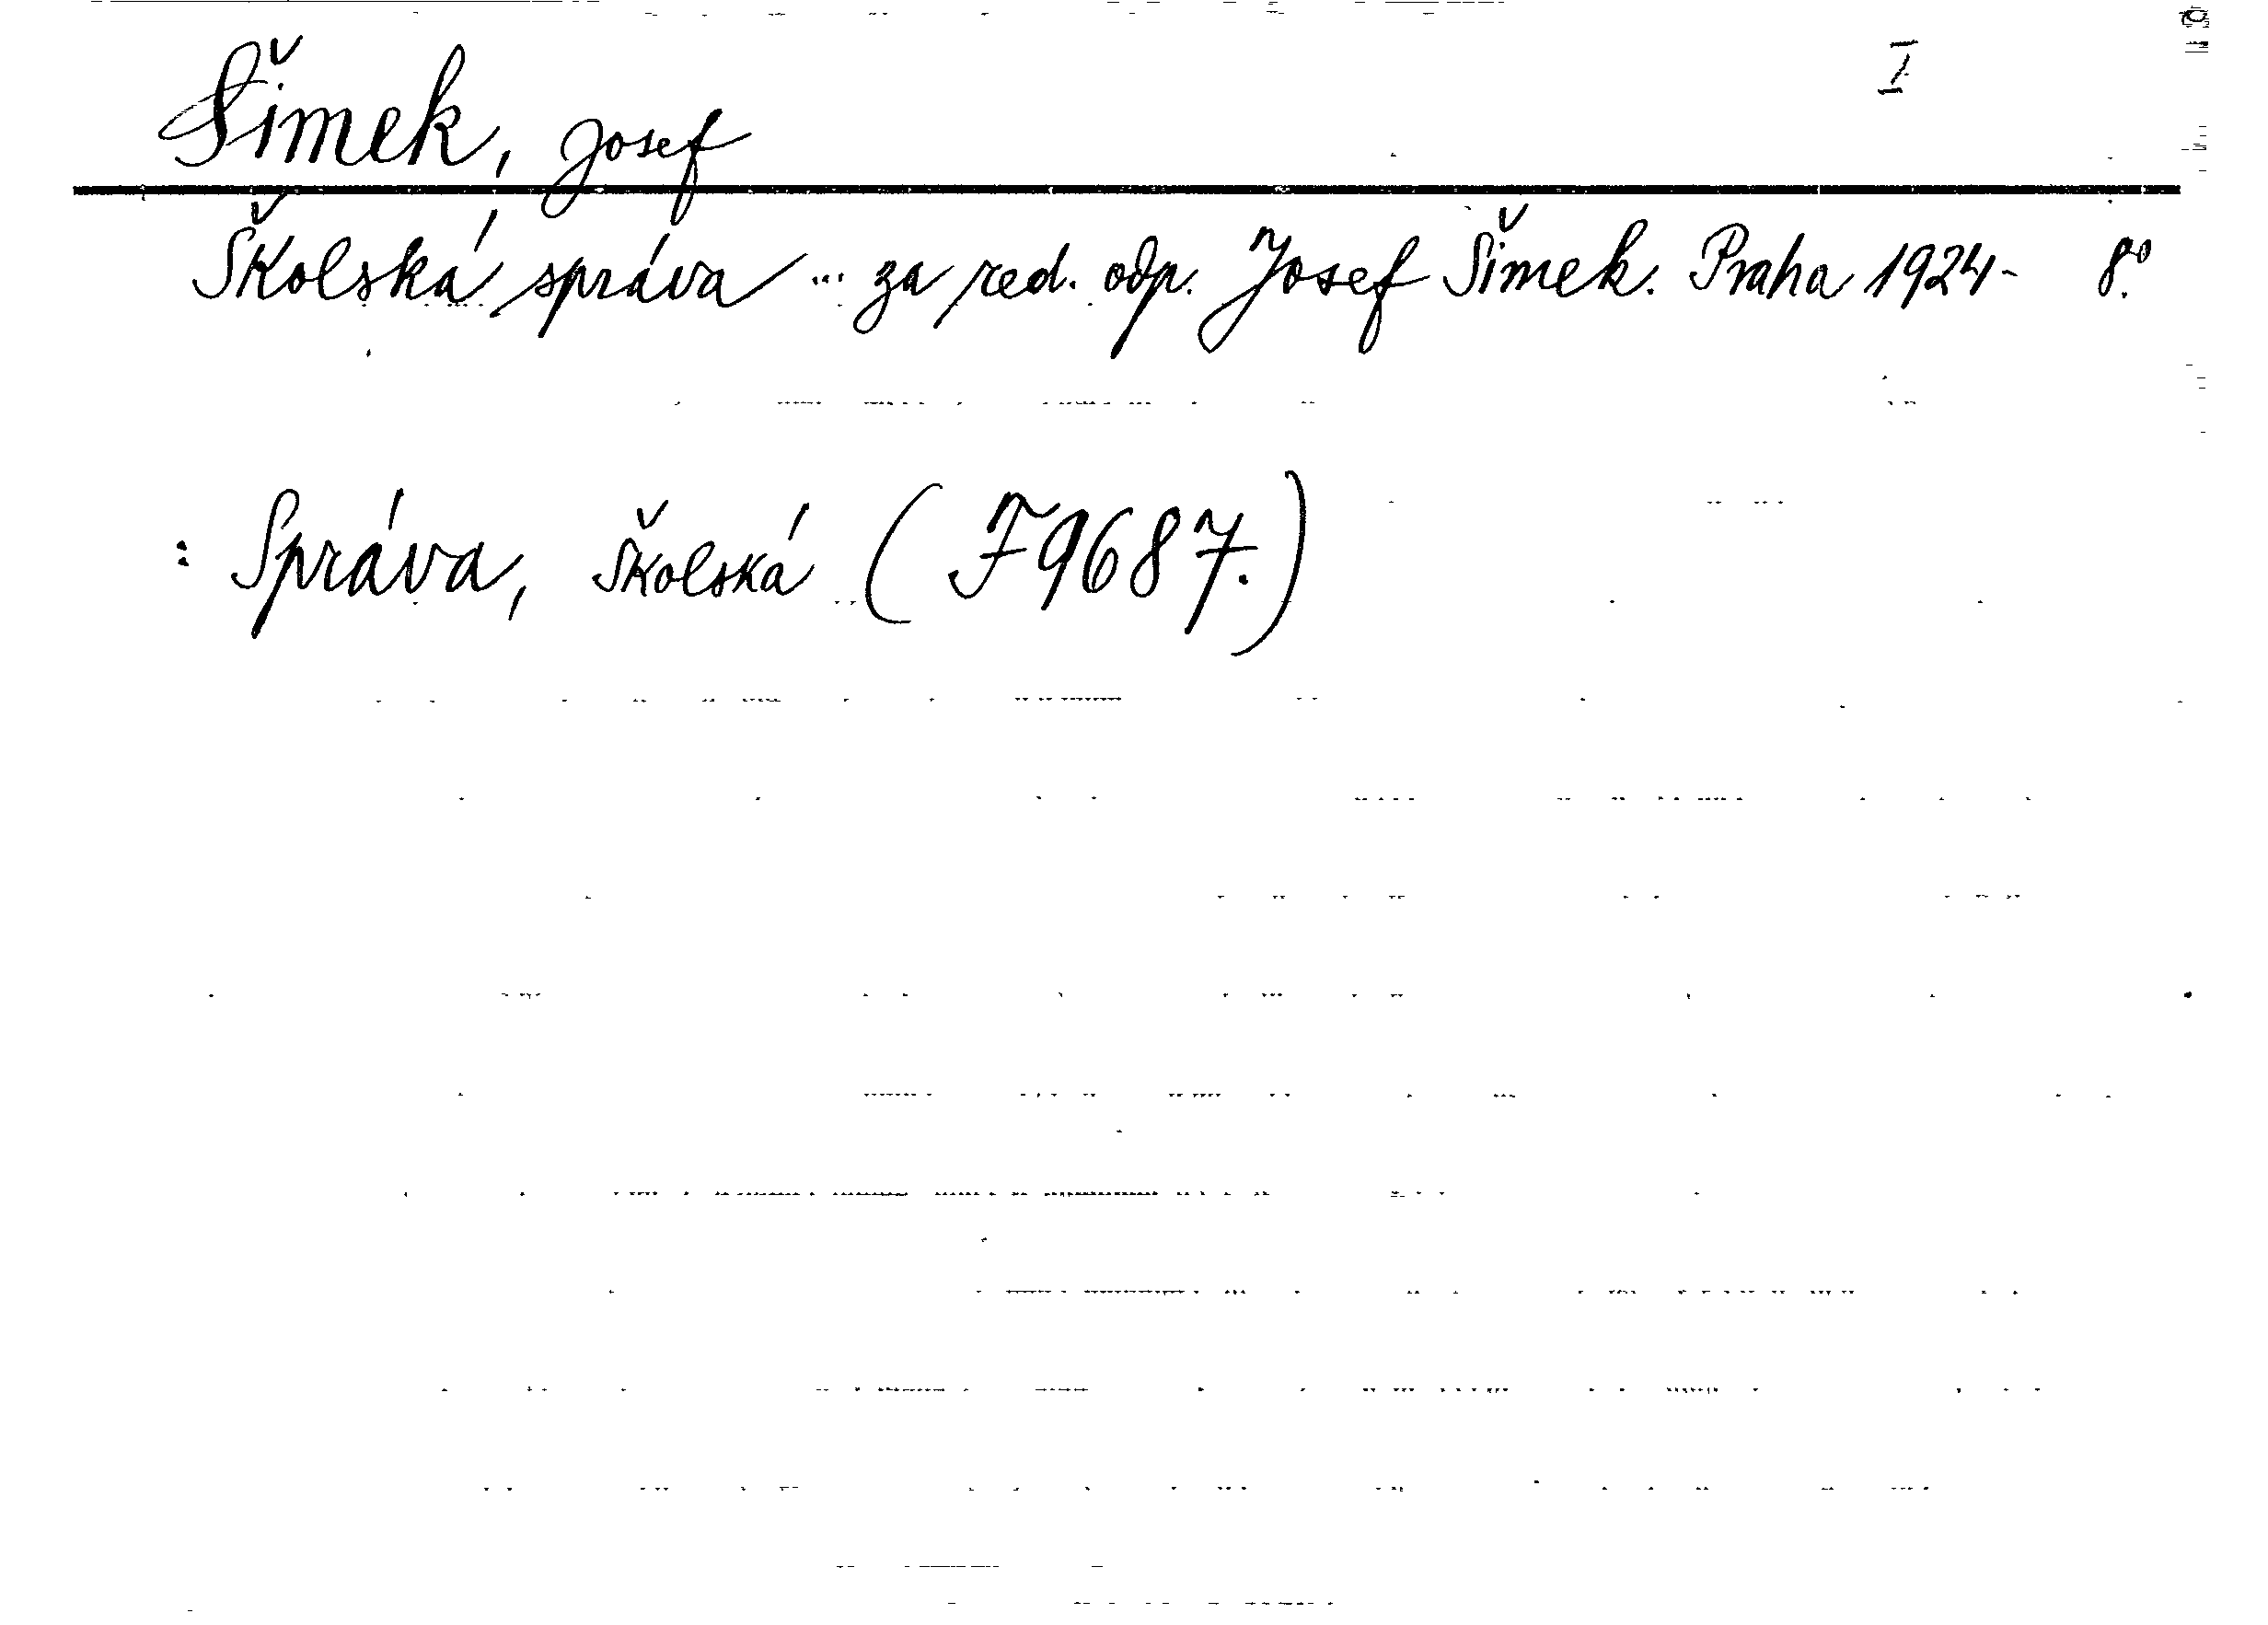 Šimek, Josef I
Školská správa ... za red. odp. Josef Šimek. Praha 1924- 8.°
: Správa, školská (F9687.)